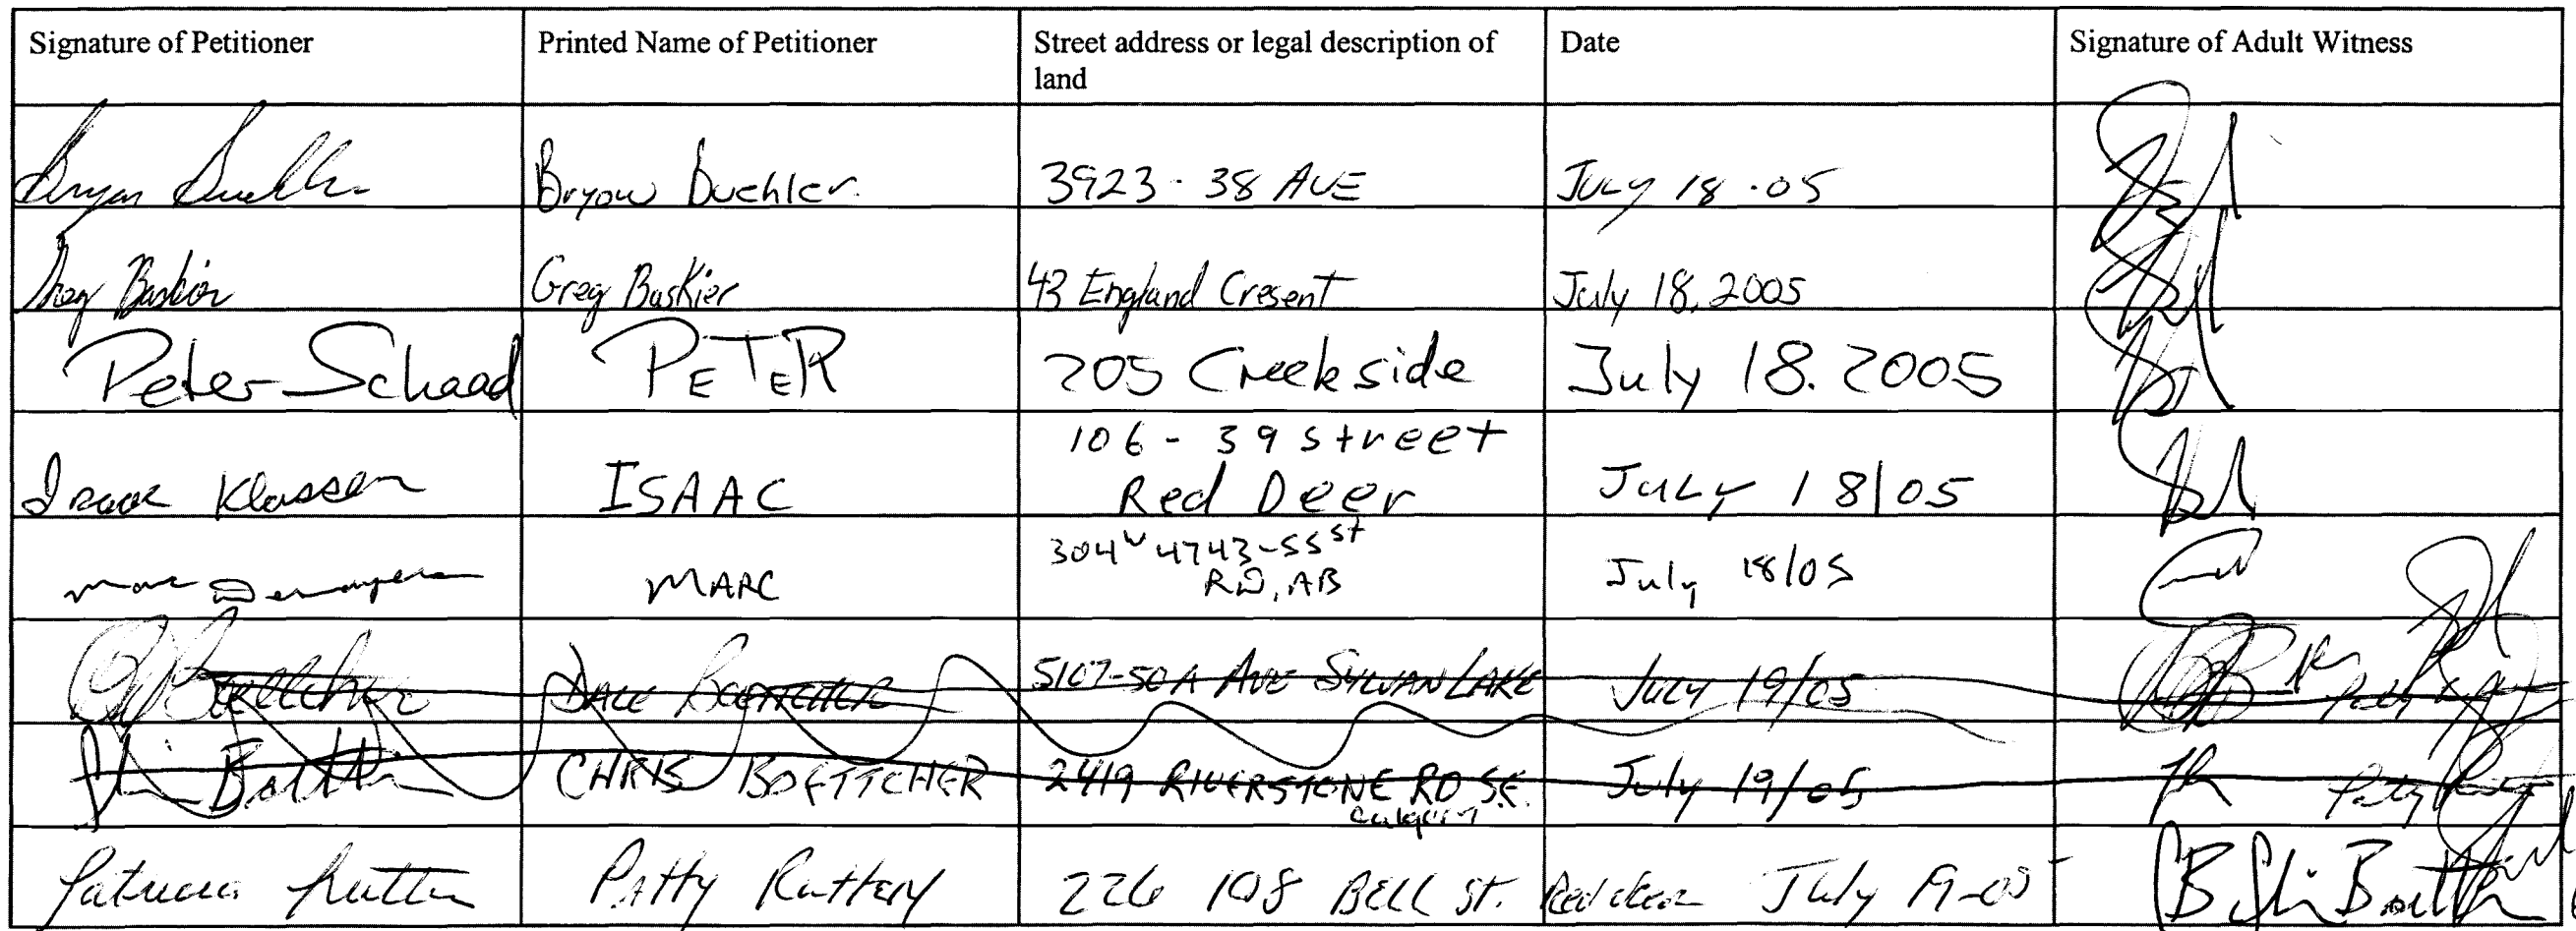 Signature of Petitioner
Printed Name of Petitioner
Street address or legal description of
land
Date
Signature of Adult Witness
Bryan Buehler
Bryon Buehler
3923 - 38 AVE
JULY 18 - 05
Greg Baskier
Greg Baskier
43 England Cresent
July 18, 2005
Peter Schaad
PETER
205 Creekside
July 18. 2005
Isaac Klassen
ISAAC
106 - 39 street
Red Deer
JULY 18/05
Marc
MARC
304 4743-55 st
RD, AB
July 18/05
Boettcher
DALE BOETTCHER
5107-50A AVE SYLVAN LAKE
JULY 19/05
CHRIS BOETTCHER
2419 RIVERSTONE RD S.E.
Calgary
July 19/05
Patricia
Patty
226 108 BELL ST. Red deer
July 19-05